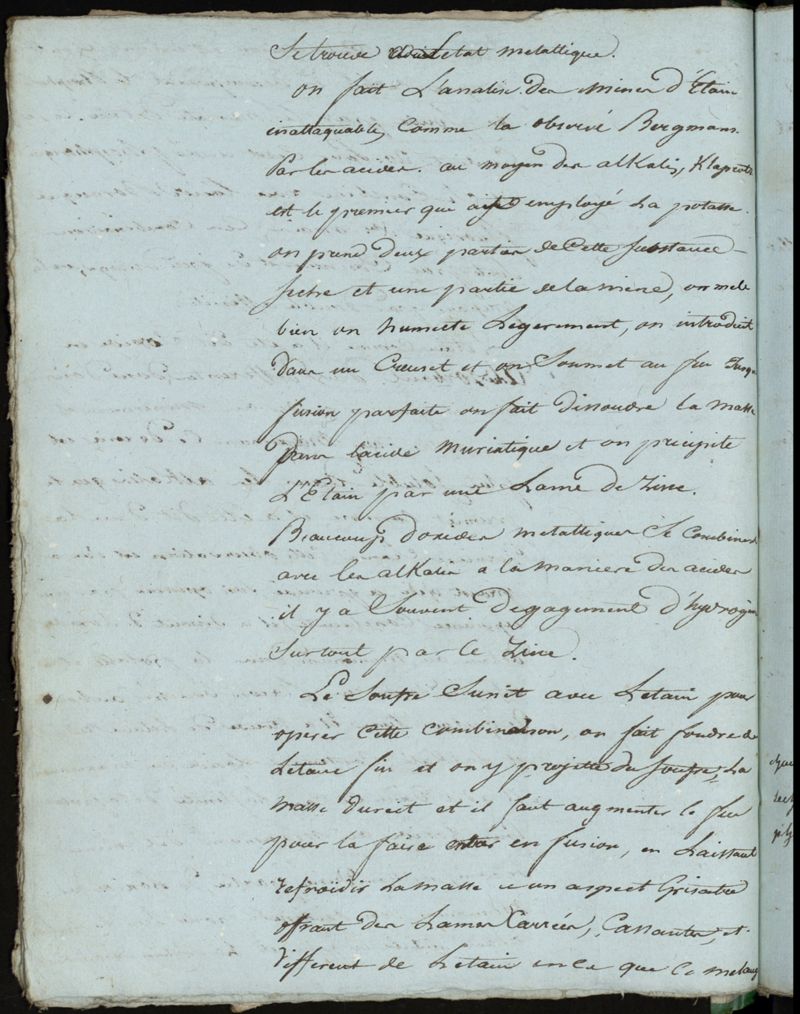 Se trouve à L'etat metallique.
on fait L'analise des mines d'Étain
inattaquables, Comme la observé Bergmann
Par les acides. au moyen des alkalis, Klaproth
est le premier que ayt employé La potasse.
on prend deux parties de Cette Substance
seche et une partie de la mine, on mele
bien on humecte Legerement, on introduit
dans un Creuset et on Soumet au feu Jusqu
fusion parfaite on fait dissoudre la masse
dans lacide Muriatique et on precipite
L'Étain par une Lame de Zinc.
Beaucoup doxides metalliques Se Combinent
avec les alkalis a la maniere des acides
il y a Souvent Degagement d'hydrogene
surtout par le Zinc.
Le Soufre S'unit avec L'etain pour
operer Cette Combinaison, on fait fondre de
Letain fin et on y projette du Soufre, La
masse durcit et il faut augmenter le feu
pour la faire entrer en fusion, en Laissant
refroidir La masse a un aspect Grisatre
offrant des Lames Carrées, Cassantes, et
different de Letain en ce que Ce melang